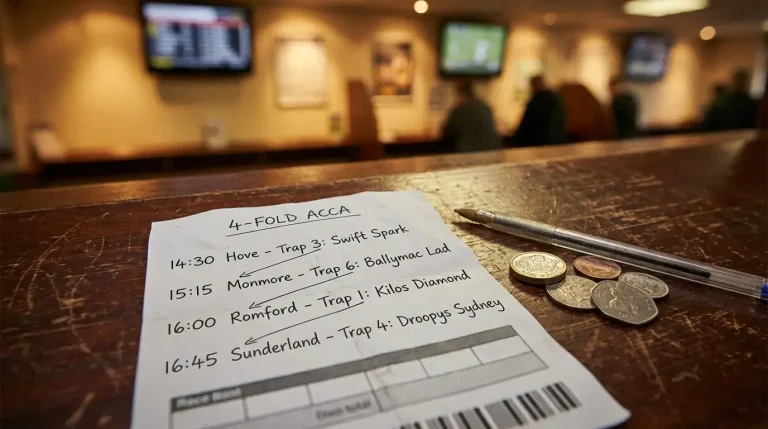 4-FOLD ACCA
14:30 Hove - Trap 3: Swift Spark
15:15 Monmore - Trap 6: Ballymac Lad
16:00 Romford - Trap 1: Kilos Diamond
16:45 Sunderland - Trap 4: Droopys Sydney
Race
total